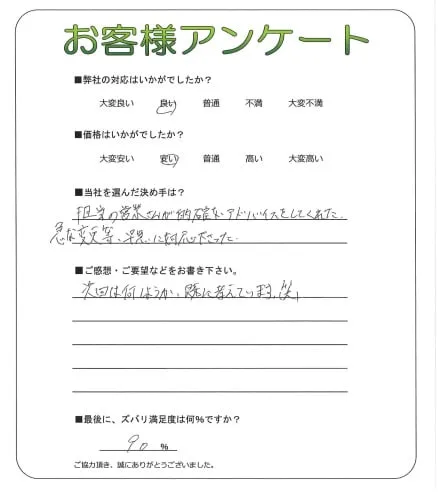 お客様アンケート
■弊社の対応はいかがでしたか？
大変良い 良い 普通 不満 大変不満
■価格はいかがでしたか？
大変安い 安い 普通 高い 大変高い
■当社を選んだ決め手は？
担当の営業さんが的確なアドバイスをしてくれた。
急な変更等、早急に対応下さった。
■ご感想・ご要望などをお書き下さい。
次回は何しようか、既に考えています。笑
■最後に、ズバリ満足度は何%ですか？
90 %
ご協力頂き、誠にありがとうございました。